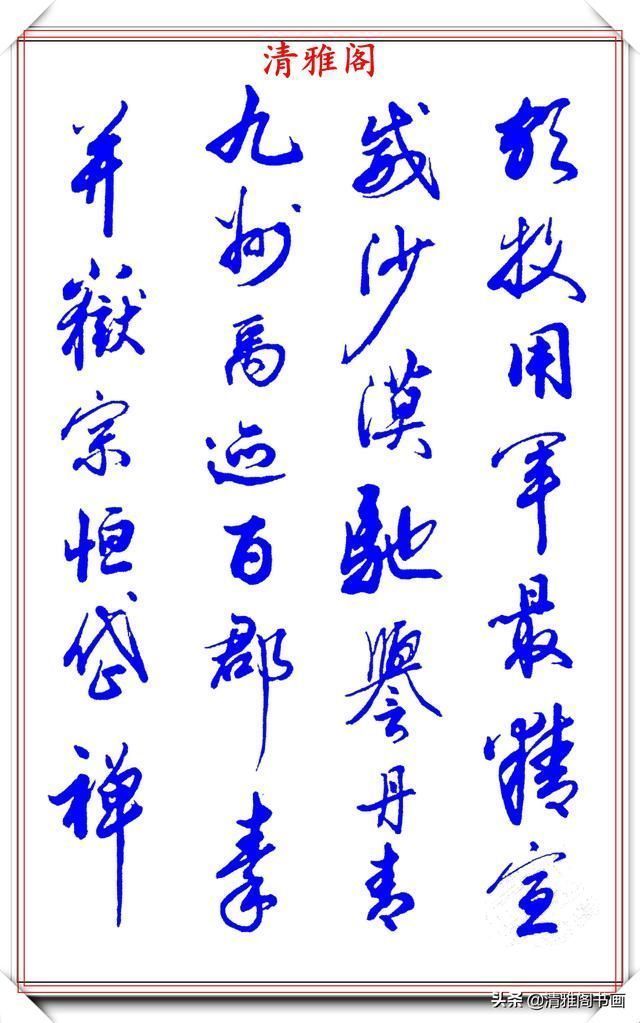 清雅阁
頗牧用軍最精宣
威沙漠馳譽丹青
九州禹迹百郡秦
并嶽宗恒岱禅
头条 @清雅阁书画